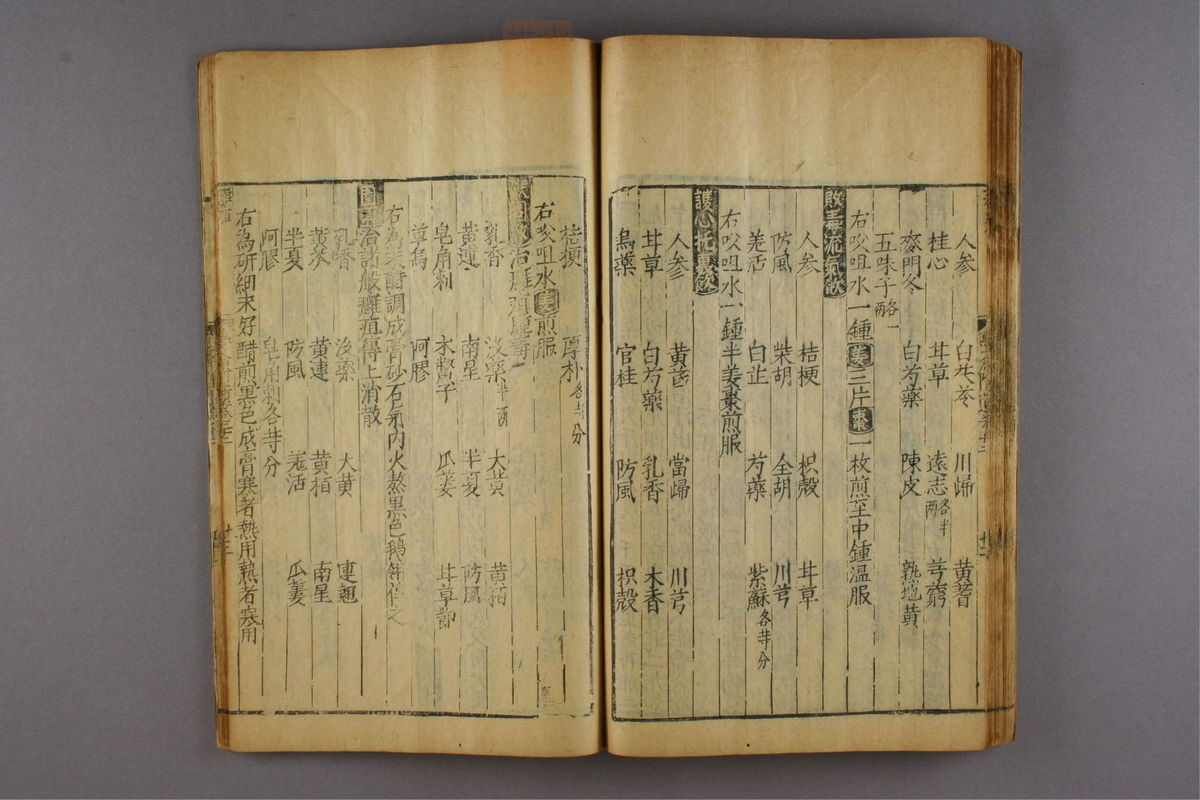 人参 白茯苓 川歸 黄蓍
桂心 甘草 遠志各半兩 芎藭
麥門冬 白芍藥 陳皮 熟地黄
五味子各一兩
右㕮咀水一鍾姜三片棗一枚煎至中鍾温服
敗毒流氣飲
人参 桔梗 枳殻 甘草
防風 柴胡 全胡 川芎
羌活 白芷 芍藥 紫蘇各等分
右㕮咀水一鍾半姜棗煎服
護心托裏飲
人参 黄芪 當歸 川芎
甘草 白芍藥 乳香 木香
烏藥 官桂 防風 枳殻
桔梗 厚朴各等分
右㕮咀水姜煎服
治癰疽
乳香 没藥半兩 大黄 黄栢
黄連 南星 半夏 防風
皂角刺 木鱉子 瓜蔞 甘草節
草烏 阿膠
右為末醋調成膏砂石氣内火熬黒色鵝翎
治諸般癰疽傅上消散
乳香 没藥 大黄 連翹
黄芩 黄連 黄栢 南星
半夏 防風 羌活 瓜蔞
阿膠 皂角刺各等分
右為研細末好醋煎黒色成膏寒者熱用熱者寒用